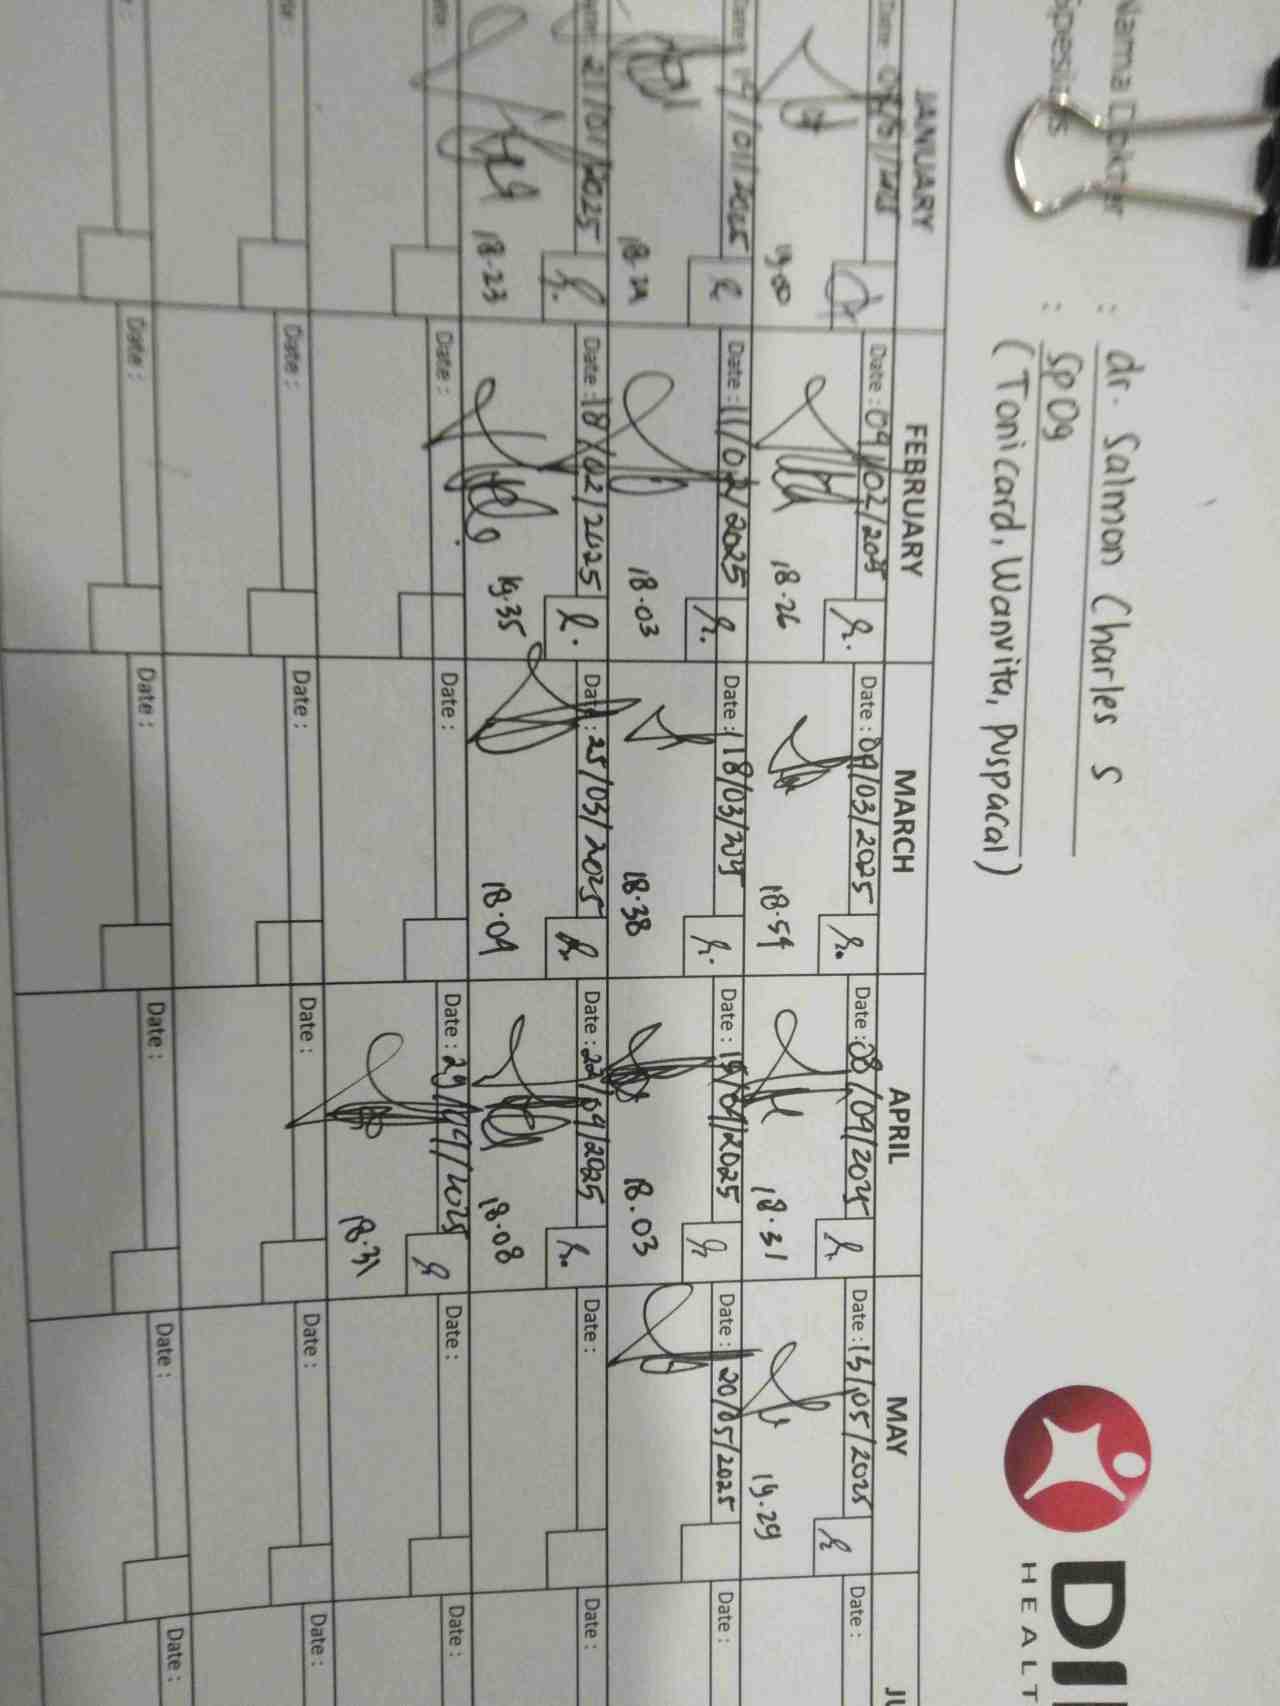 Nama Dokter : dr. Salmon Charles S
Spesialis : SpOg
(Tonicard, Wanvita, Puspacal)
DI
HEALT
JANUARY FEBRUARY MARCH APRIL MAY JU
Date : 04/02/2025 Date : 04/03/2025 Date : 08/04/2025 Date : 13/05/2025 Date :
19.00 18.26 18.54 18.31 19.29
Date : 14/01/2025 Date : 11/02/2025 Date : 18/03/2025 Date : 15/04/2025 Date : 20/05/2025 Date :
18.03 18.38 18.03
21/01/2025 Date : 18/02/2025 Date : 25/03/2025 Date : 22/04/2025 Date : Date :
18.23 19.35 18.04 18.08
Date : Date : Date : 29/04/2025 Date : Date :
18.31
Date : Date : Date : Date : Date :
Date : Date : Date : Date : Date :